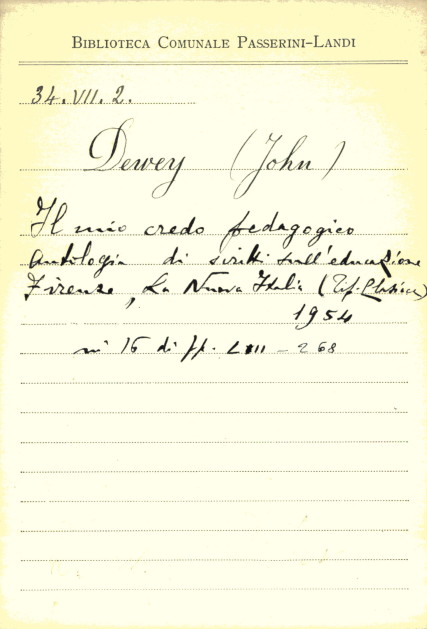 BIBLIOTECA COMUNALE PASSERINI-LANDI
34.VII.2.
Dewey (John)
Il mio credo pedagogico
Antologia di scritti sull'educazione
Firenze, La Nuova Italia (Tip. Classica)
1954
in 16 di pp. LIII - 268